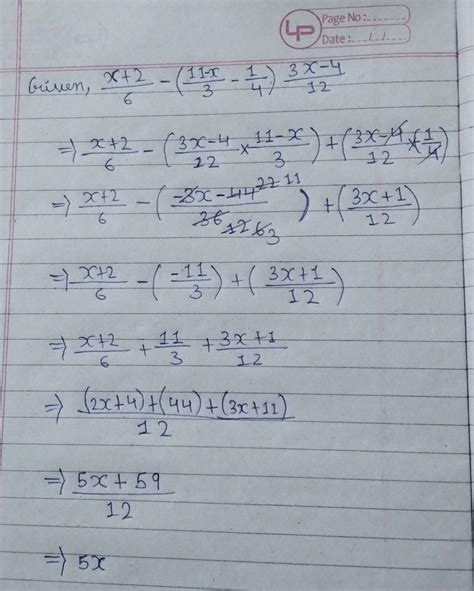 LP Page No:
Date: / /
Given, x+2/6 - (11-x/3 - 1/4) 3x-4/12
⇒ x+2/6 - (3x-4/12 × 11-x/3) + (3x-4/12 × (1/4)
⇒ x+2/6 - (-3x-44 22 11/36 12 6 3) + (3x+1/12)
⇒ x+2/6 - (-11/3) + (3x+1/12)
⇒ x+2/6 + 11/3 + 3x+1/12
⇒ (2x+4)+(44)+(3x+11)/12
⇒ 5x+59/12
⇒ 5x